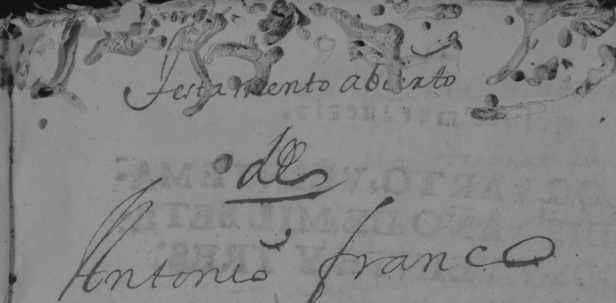 Testamento abierto
de
Antonio franco